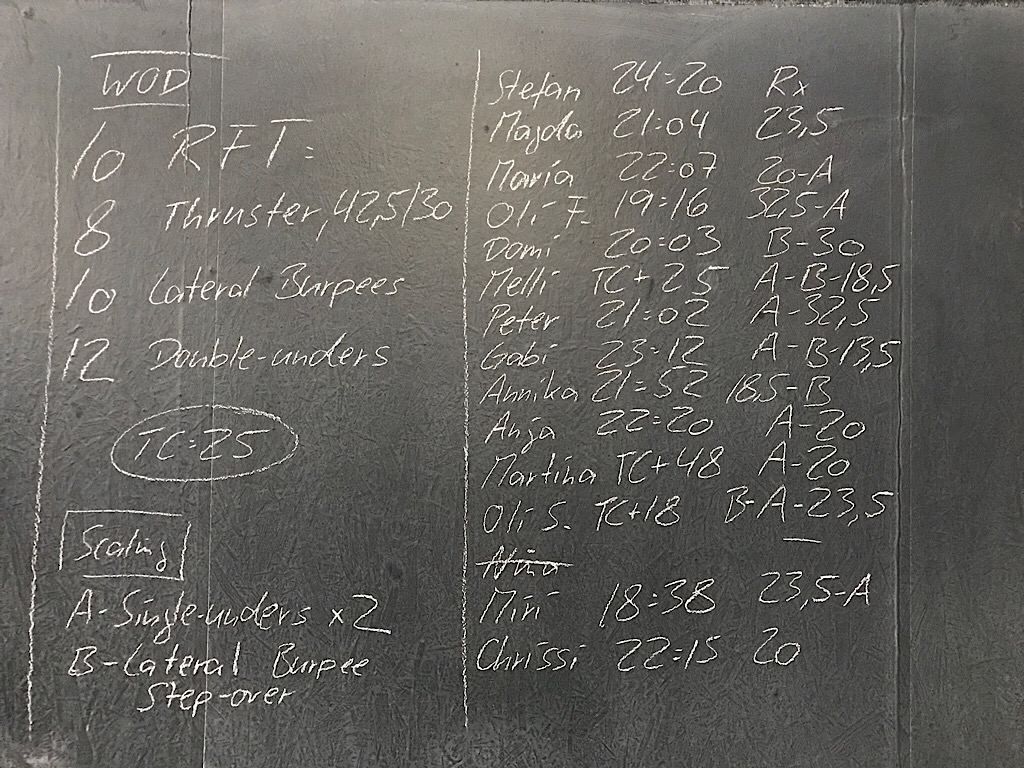 WOD
10 RFT:
8 Thruster, 42,5/30
10 Lateral Burpees
12 Double-unders
TC=25
Scaling
A-Single-unders x2
B-Lateral Burpee
Step-over
Stefan 24:20 Rx
Magda 21:04 23,5
Maria 22:07 20-A
Oli F. 19:16 32,5-A
Domi 20:03 B-30
Melli TC+25 A-B-18,5
Peter 21:02 A-32,5
Gabi 23:12 A-B-13,5
Annika 21:52 18,5-B
Anja 22:20 A-20
Martina TC+48 A-20
Oli S. TC+18 B-A-23,5
Nina
Miri 18:38 23,5-A
Chrissi 22:15 20